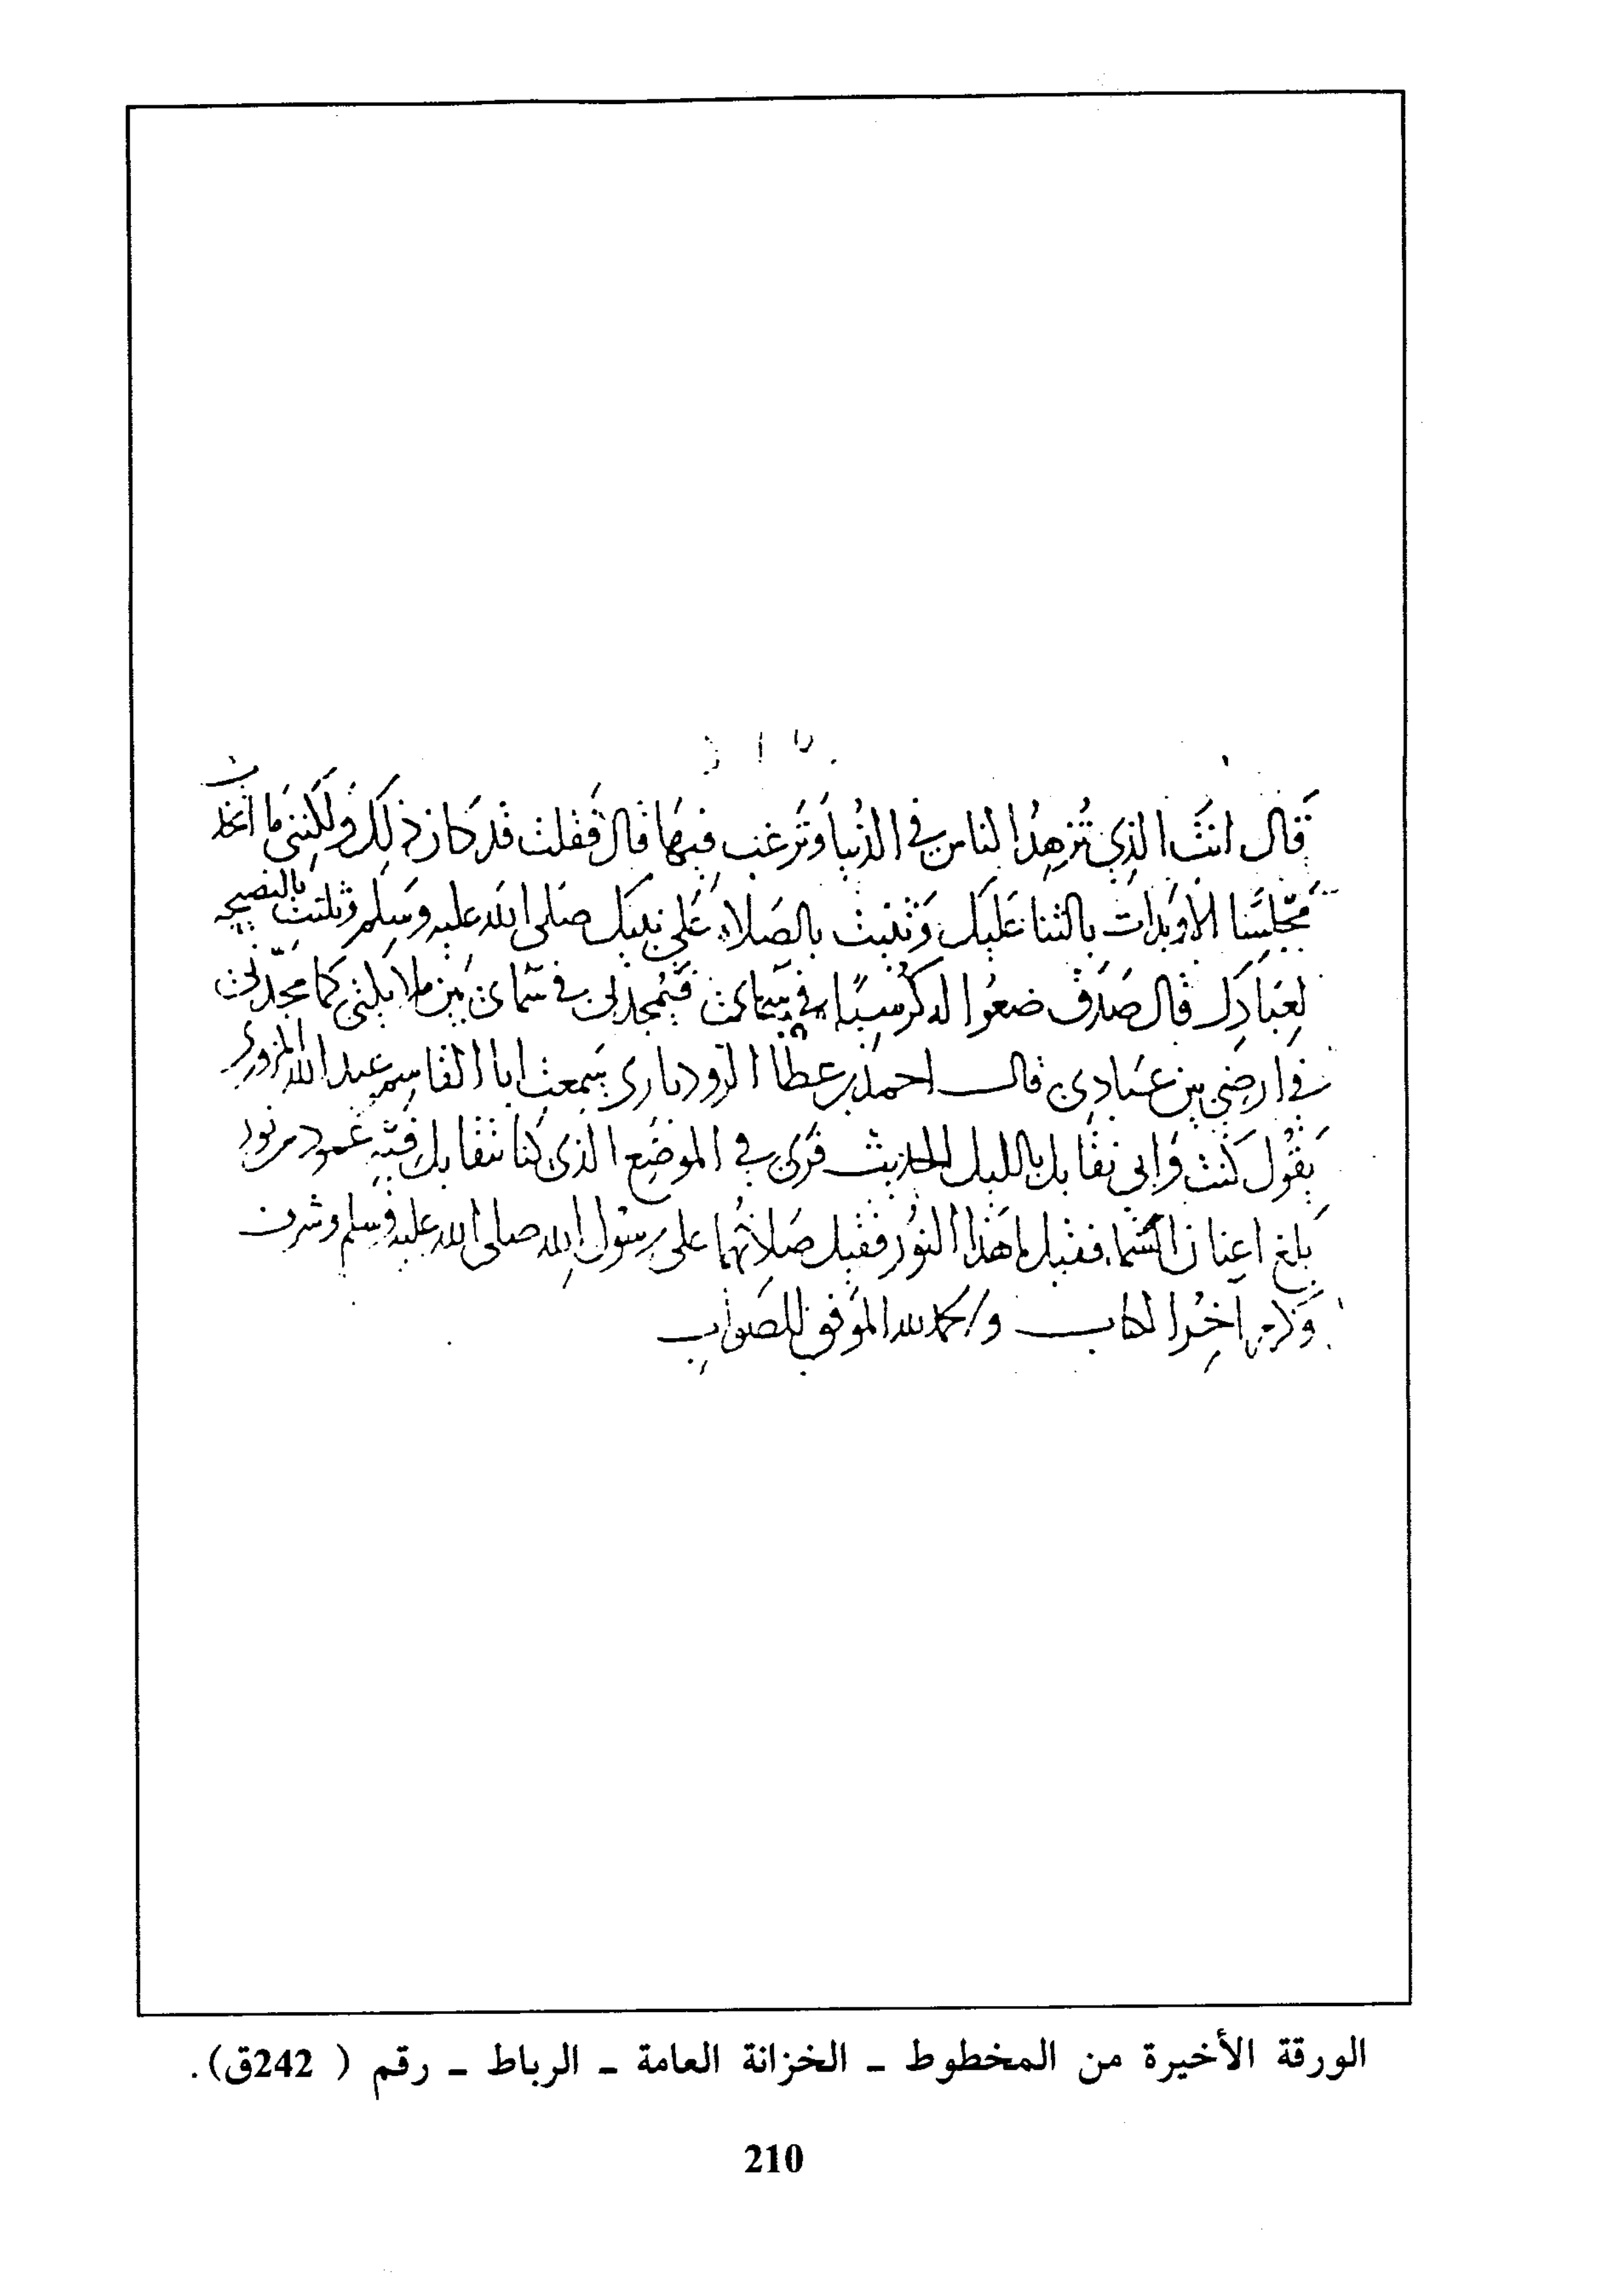 قَال انتَ الذِي تُزهِدُ الناس في الدُنيا وَتَرغب فيهَا قال فَقلت قد كان ذلِك ولكِنني ما اتخذت
مَجْلِسًا الا وَبدات بالثنا عَليَك وَثنيت بالصَلاة عَلى نبيك صَلى الله عليه وَسَلم وَثلثت بالنصيحه
لِعِبَادِك قال صَدَق ضعُوا له كُرْسيًا في سمائي فيُمجدني في سَمائي بَين ملايكتي كما مَجَّدني
في ارضي بين عبَادِي قال احمد بن عطا الروذباري سَمعت ابا القاسِم عبد الله المروزي
يَقُول كنت وَابي نقَابل بالليل الحديث فرُىِ في الموضع الذي كنا نتقابل فيه عَمود من نور
بَلغ اعنان السَّما فقيل ما هَذا النوُر فقيل صَلاتهُما على رسُول الله صلى الله عليه وَسَلم وشرف
وَكرم اخِرُ الكتاب والحمد لله الموَفق للصَواب
الورقة الأخيرة من المخطوط - الخزانة العامة - الرباط - رقم ( 242ق).
210